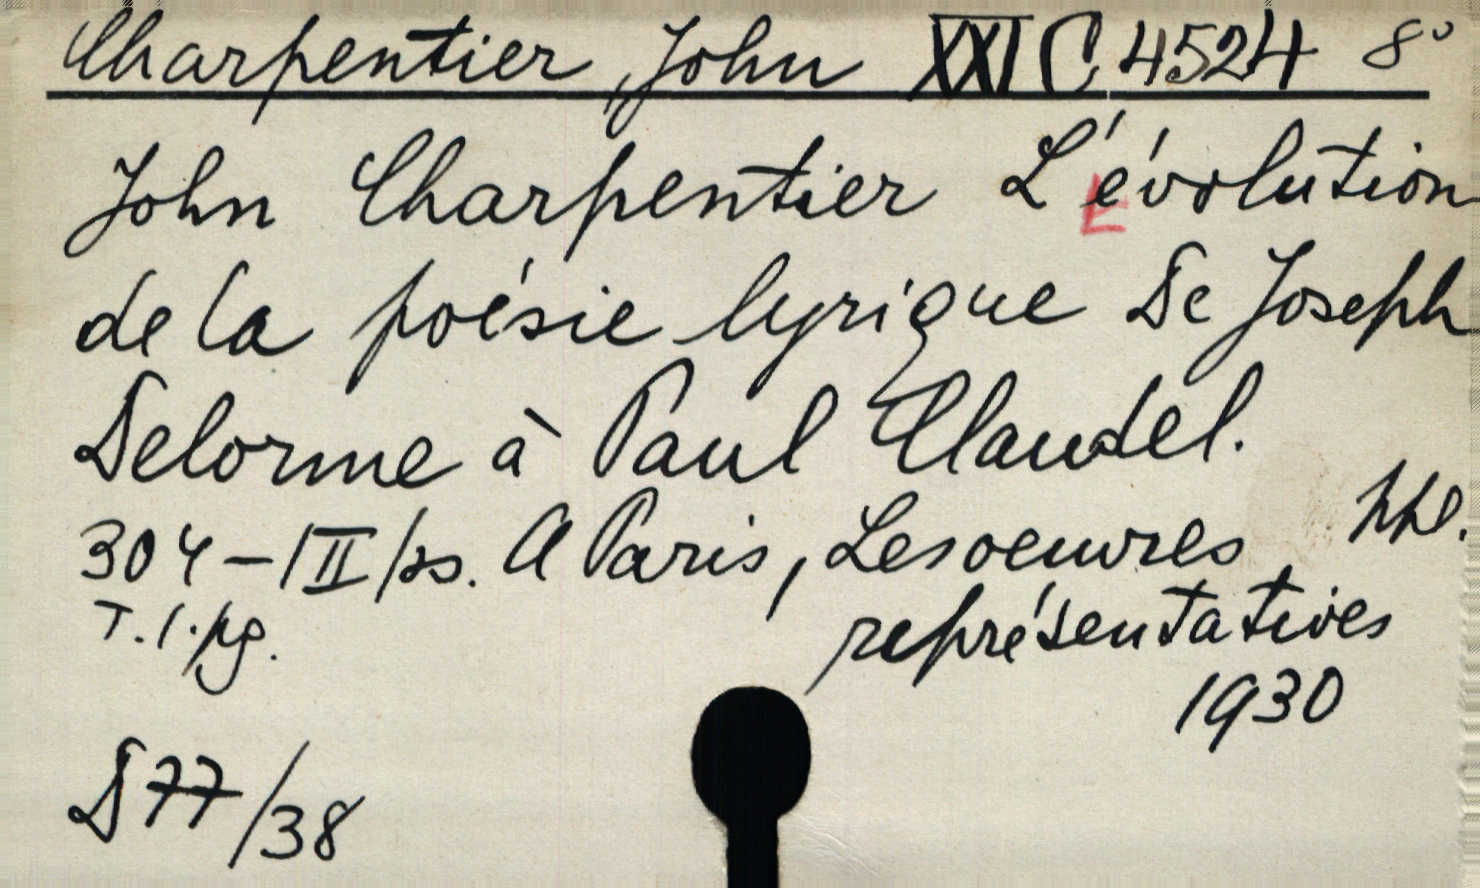 Charpentier, John XXI C 4524 8°
John Charpentier L'évolution
E
de la poésie lyrique De Joseph
Delorme à Paul Claudel.
304 - | II | ss. A Paris, Les oeuvres
représentatives
T. l. pg.
1930
D 77/38